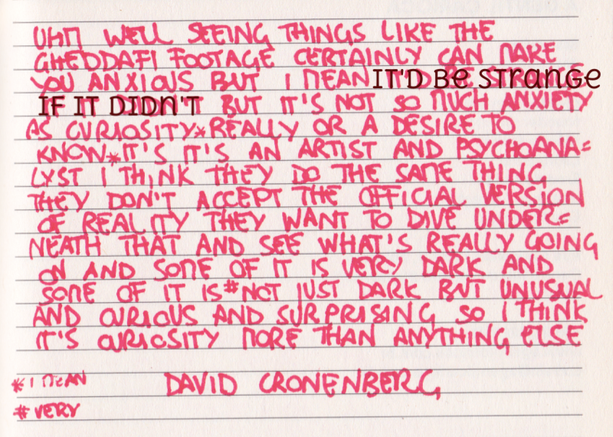 UHM WELL SEEING THINGS LIKE THE
GHEDDAFI FOOTAGE CERTAINLY CAN MAKE
YOU ANXIOUS BUT I MEAN IT'D BE STRANGE
IF IT DIDN'T BUT IT'S NOT SO MUCH ANXIETY
AS CURIOSITY*REALLY OR A DESIRE TO
KNOW*IT'S IT'S AN ARTIST AND PSYCHOANA=
LYST I THINK THEY DO THE SAME THING
THEY DON'T ACCEPT THE OFFICIAL VERSION
OF REALITY THEY WANT TO DIVE UNDER=
NEATH THAT AND SEE WHAT'S REALLY GOING
ON AND SOME OF IT IS VERY DARK AND
SOME OF IT IS#NOT JUST DARK BUT UNUSUAL
AND CURIOUS AND SURPRISING SO I THINK
IT'S CURIOSITY MORE THAN ANYTHING ELSE
*I MEAN DAVID CRONENBERG
#VERY